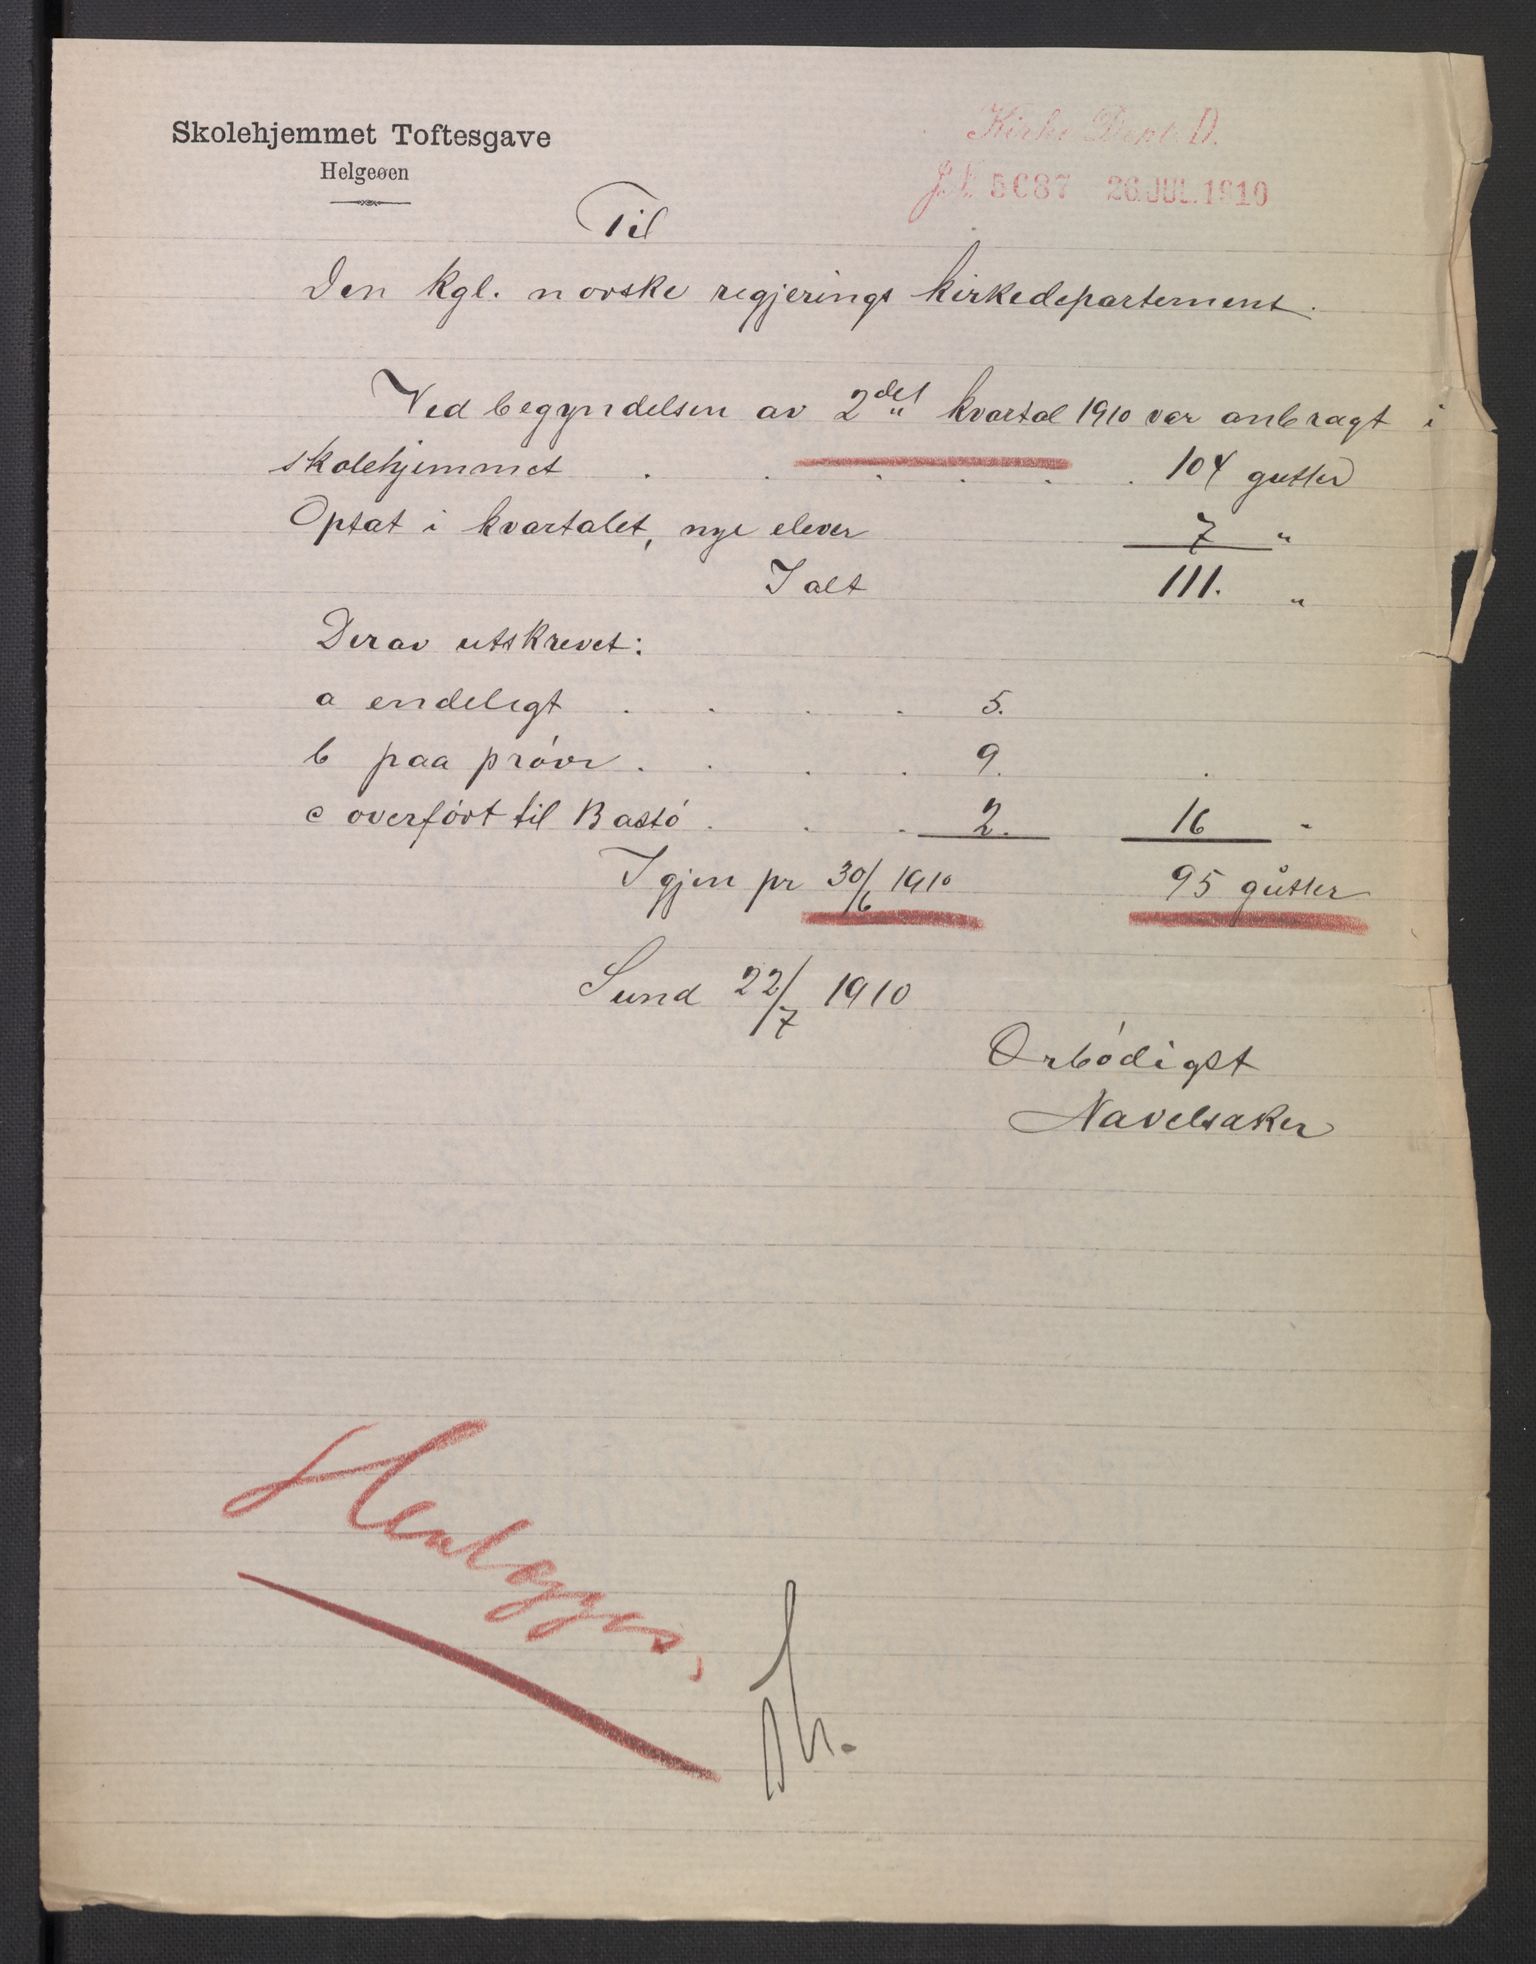 Skolehjemmet Toftesgave
Helgeøen
Kirke Dept. D.
J.N. 5087 26.JUL.1910
Til
Den kgl. norske regjerings kirkedepartement.
Ved begyndelsen av 2det kvartal 1910 var anbragt i
skolehjemmet . . . . . . 104 gutter
Optat i kvartalet, nye elever 7 "
I alt 111. "
Derav utskrevet:
a endeligt . . . . 5.
b paa prøve . . . . 9.
c overført til Bastø . . . 2. 16 "
Igjen pr 30/6 1910 95 gutter
Sund 22/7 1910
Ørbødigst
Navelsaker
Henlægges,